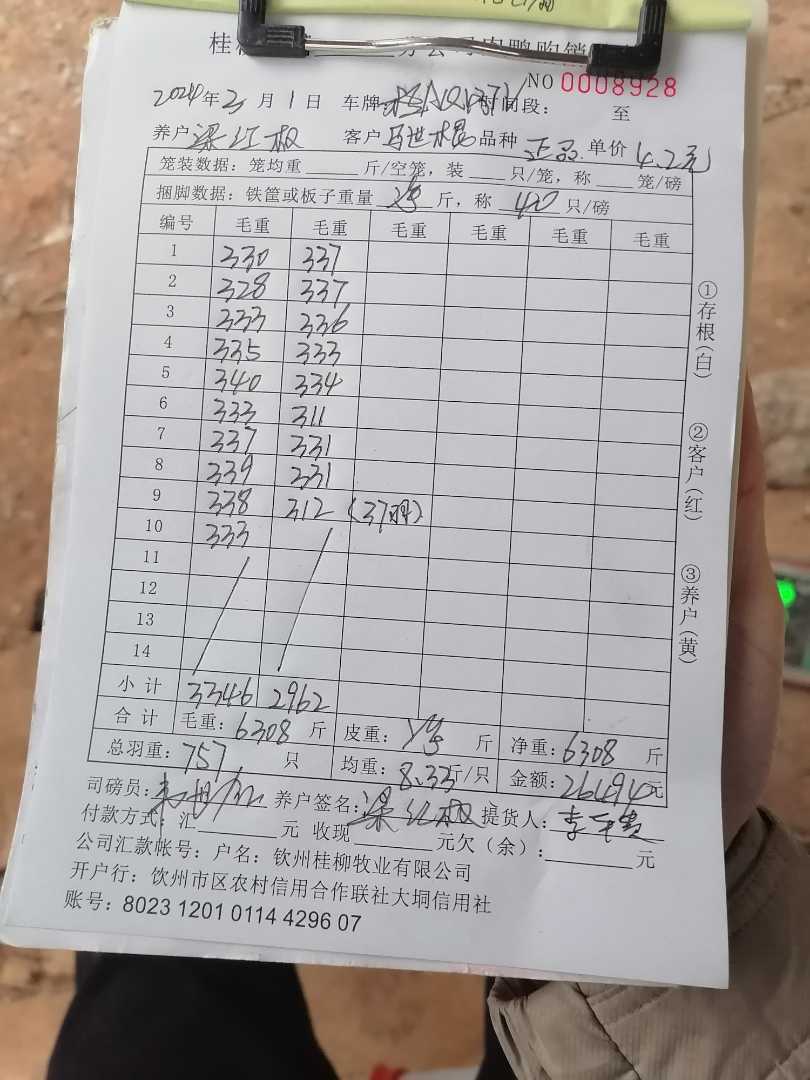 分公司肉鸭购销
NO 0008928
2024年3月1日 车牌: 时间段: 至
养户 梁红极 客户 马世 品种 正品 单价 4.2元
笼装数据: 笼均重 斤/空笼, 装 只/笼, 称 笼/磅
捆脚数据: 铁筐或板子重量 斤, 称 40 只/磅
编号 毛重 毛重 毛重 毛重 毛重 毛重
1 330 337
2 328 337
3 333 336
4 335 333
5 340 334
6 333 311
7 337 331
8 339 331
9 338 312 (37羽)
10 333
11
12
13
14
小计 3346 2962
合计 毛重: 6308 斤 皮重: 斤 净重: 6308 斤
总羽重: 757 只 均重: 8.33斤/只 金额: 26494元
司磅员: 养户签名: 梁红极 提货人: 李
付款方式: 汇 元 收现 元欠(余): 元
公司汇款帐号: 户名: 钦州桂柳牧业有限公司
开户行: 饮州市区农村信用合作联社大垌信用社
账号: 8023 1201 0114 4296 07
①存根(白)
②客户(红)
③养户(黄)